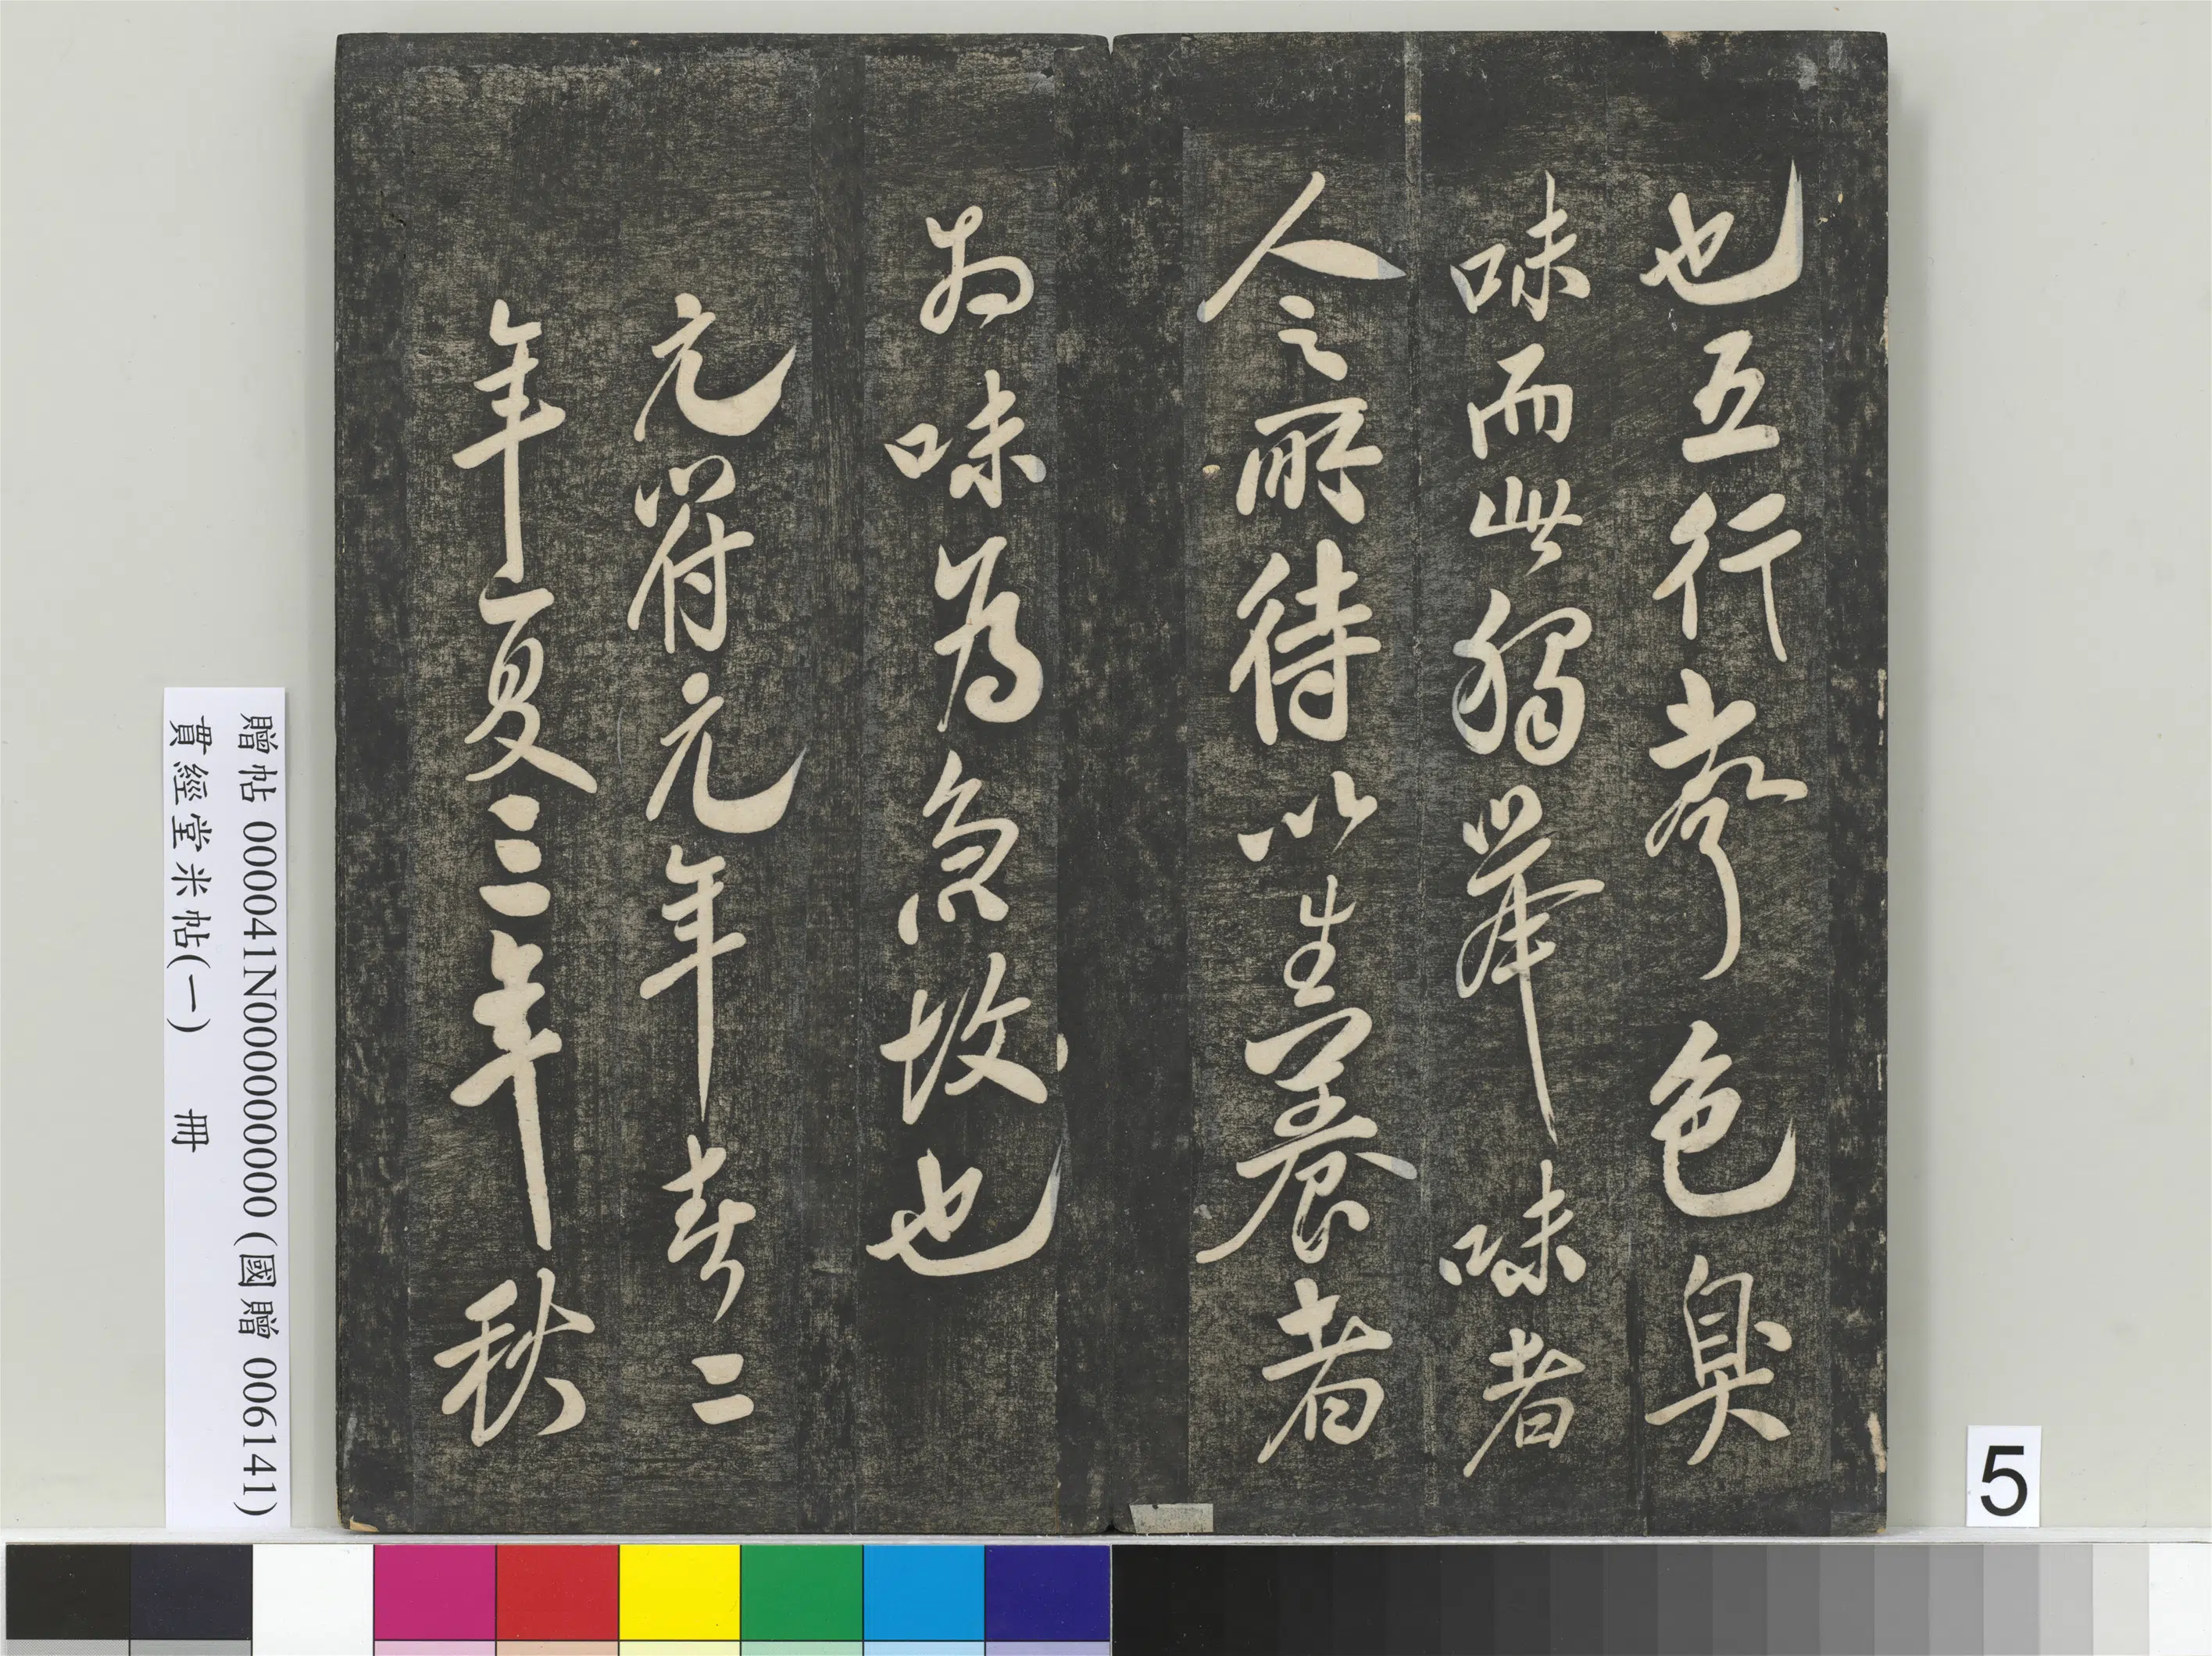 也五行聲色臭
味而此獨舉味者
人之所待以生養者
為味為急故也
元符元年春二
年夏三年秋
贈帖 000041N000000000 (國贈 006141)
貫經堂米帖(一) 冊
5